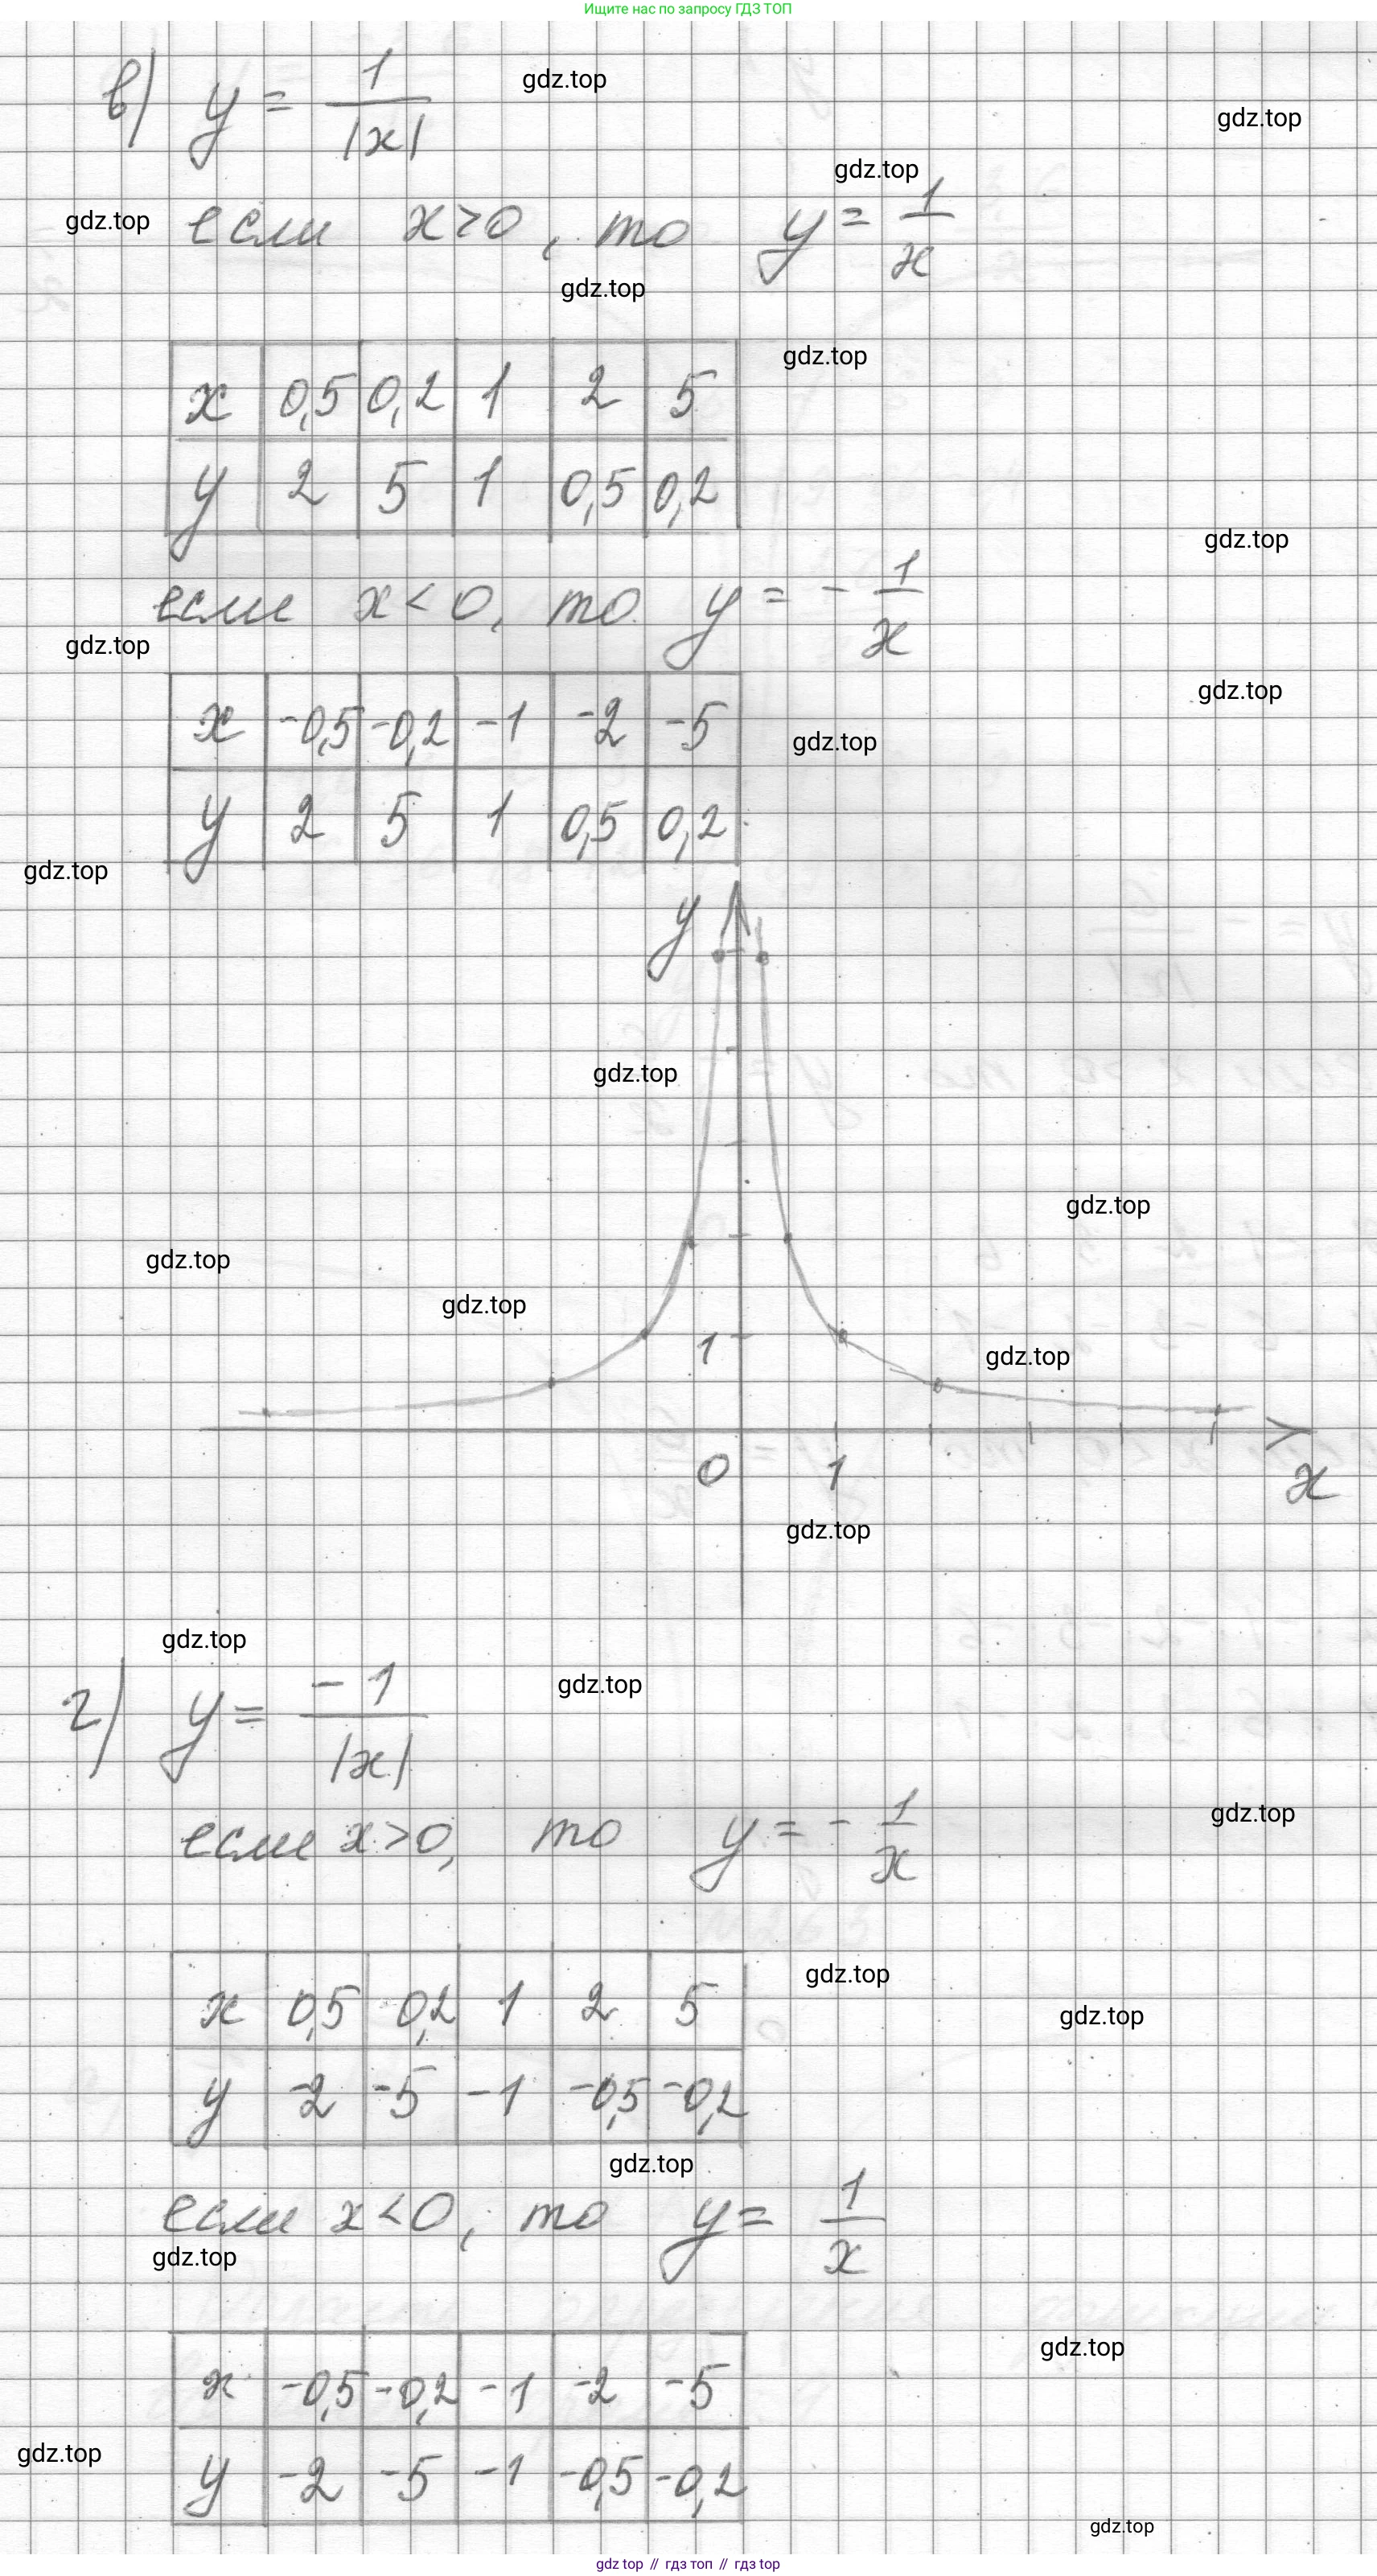 Ищите нас по запросу ГДЗ ТОП
в) y = 1/|x|
gdz.top
gdz.top
gdz.top
gdz.top
если x>0, то y = 1/x
gdz.top
gdz.top
x 0,5 0,2 1 2 5
y 2 5 1 0,5 0,2
gdz.top
если x<0, то y = - 1/x
gdz.top
gdz.top
x -0,5 -0,2 -1 -2 -5
gdz.top
y 2 5 1 0,5 0,2
gdz.top
y
gdz.top
gdz.top
gdz.top
gdz.top
1
gdz.top
0 1 x
gdz.top
gdz.top
г) y = -1/|x|
gdz.top
gdz.top
если x>0, то y = - 1/x
gdz.top
x 0,5 0,2 1 2 5
gdz.top
y -2 -5 -1 -0,5 -0,2
gdz.top
если x<0, то y = 1/x
gdz.top
gdz.top
x -0,5 -0,2 -1 -2 -5
gdz.top
y -2 -5 -1 -0,5 -0,2
gdz.top
gdz top // гдз топ // гдз top